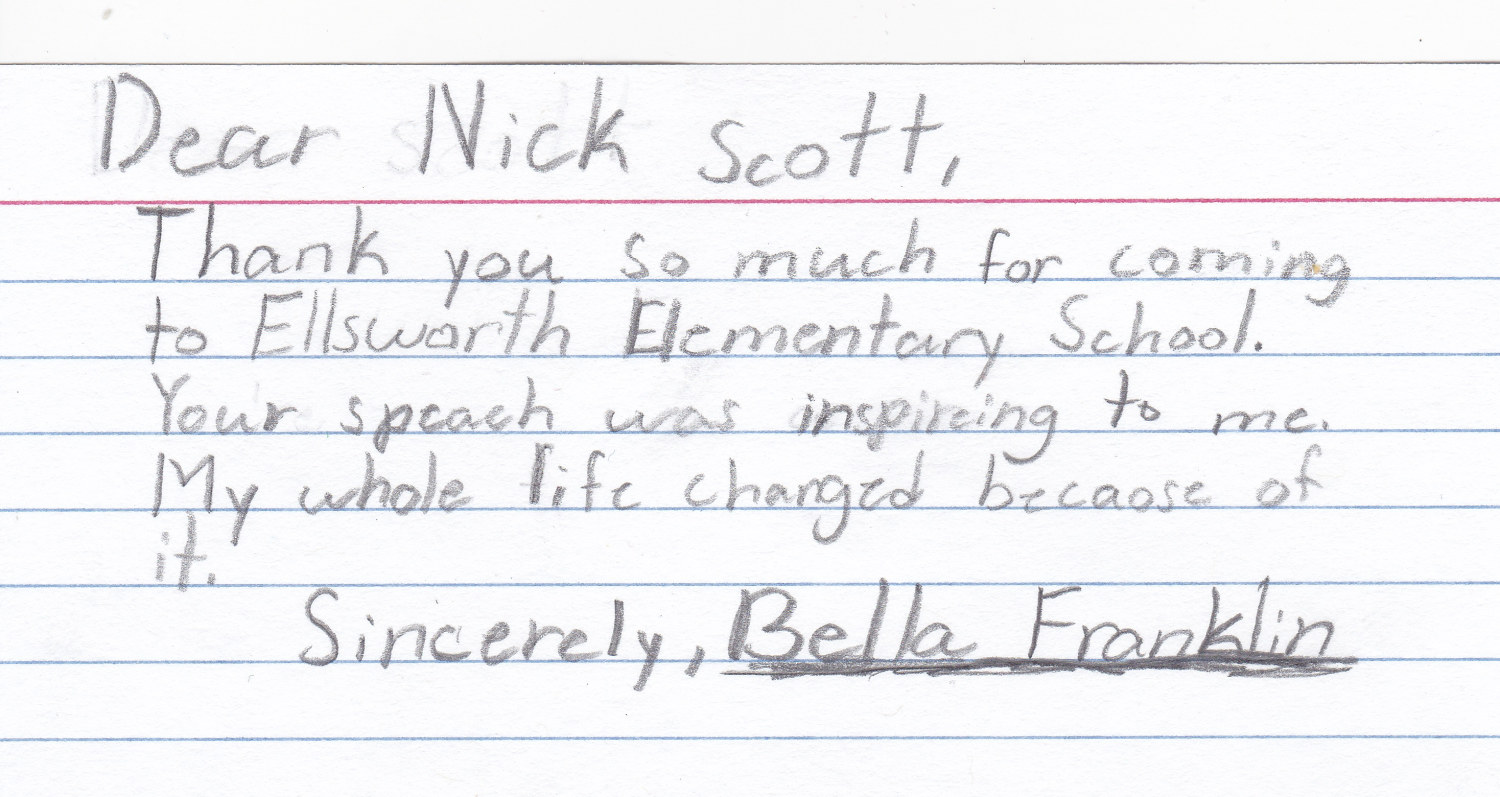 Dear Nick Scott,
Thank you so much for coming
to Ellsworth Elementary School.
Your speach was inspireing to me.
My whole life changed becaose of
it.
Sincerely, Bella Franklin